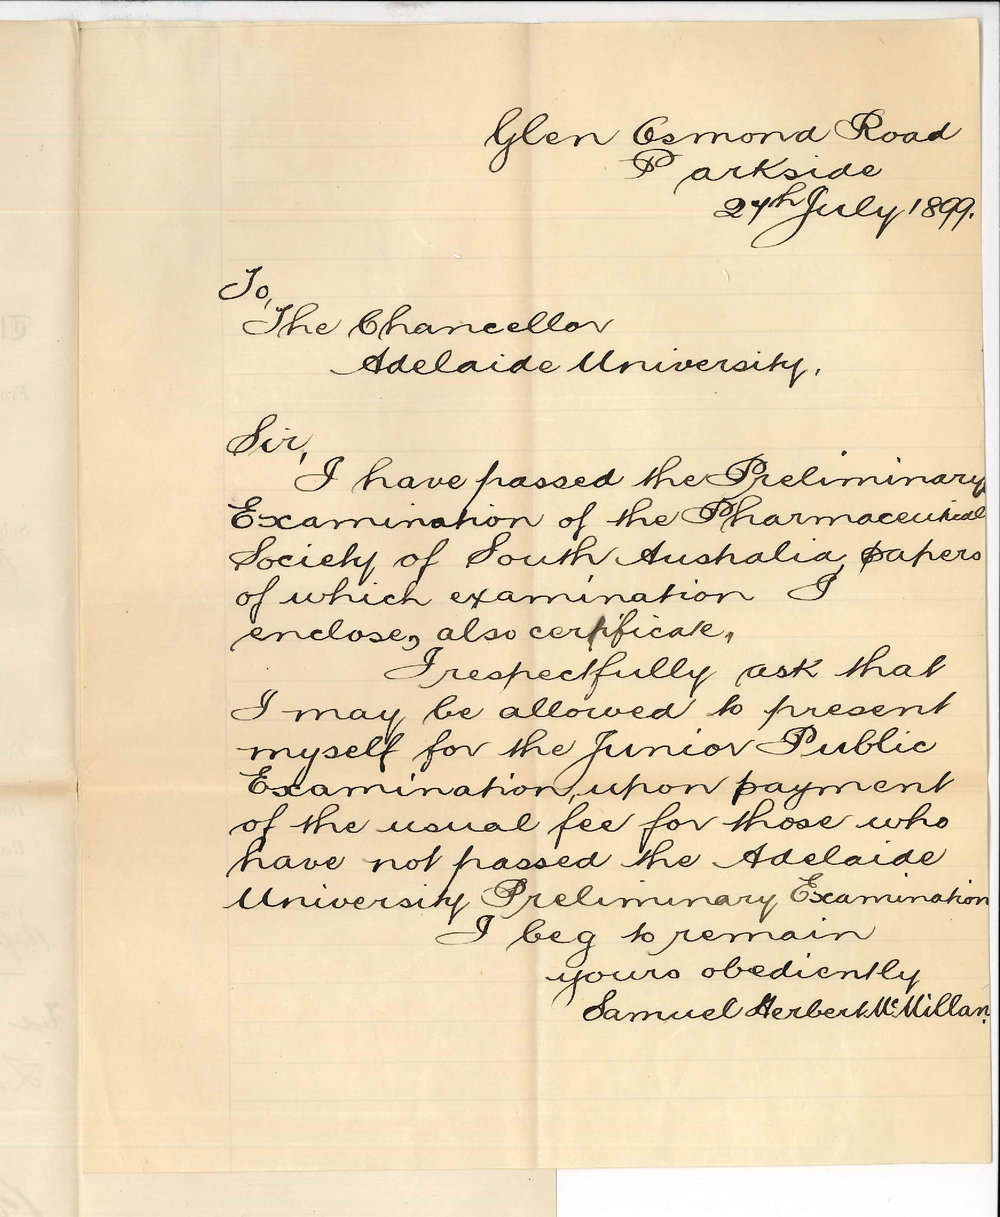 Glen Osmond Road
Parkside
24th July 1899.
To,
The Chancellor
Adelaide University.
Sir,
I have passed the Preliminary
Examination of the Pharmaceutical
Society of South Australia, papers
of which examination I
enclose, also certificate.
I respectfully ask that
I may be allowed to present
myself for the Junior Public
Examination, upon payment
of the usual fee for those who
have not passed the Adelaide
University Preliminary Examination
I beg to remain
yours obediently
Samuel Herbert McMillan.